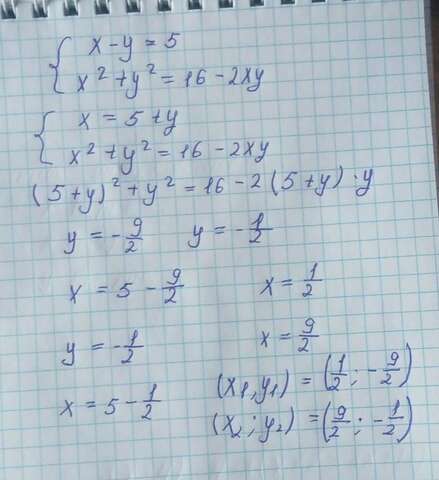 x - y = 5
x² + y² = 16 - 2xy
x = 5 + y
x² + y² = 16 - 2xy
(5 + y)² + y² = 16 - 2(5 + y) · y
y = -9/2   y = -1/2
x = 5 - 9/2   x = 1/2
y = -1/2   x = 9/2
x = 5 - 1/2
(x₁, y₁) = (1/2; -9/2)
(x₂; y₂) = (9/2; -1/2)